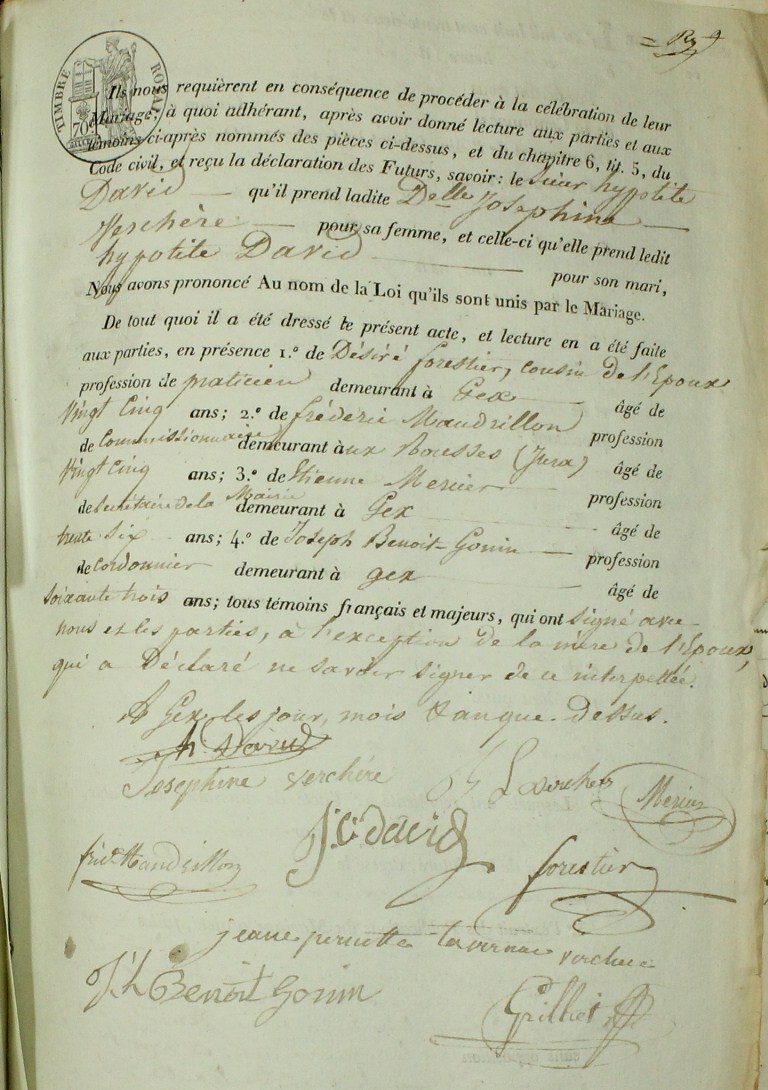 TIMBRE ROYAL
70
Ils nous requièrent en conséquence de procéder à la célébration de leur
Mariage; à quoi adhérant, après avoir donné lecture aux parties et aux
témoins ci-après nommés des pièces ci-dessus, et du chapitre 6, tit. 5, du
Code civil, et reçu la déclaration des Futurs, savoir: le Sieur hypotite
David qu'il prend ladite Delle Josephine
Verchère pour sa femme, et celle-ci qu'elle prend ledit
hypotite David pour son mari,
Nous avons prononcé Au nom de la Loi qu'ils sont unis par le Mariage.
De tout quoi il a été dressé le présent acte, et lecture en a été faite
aux parties, en présence 1.º de Désiré forestier, cousin de l'Epoux
profession de praticien demeurant à Gex âgé de
Vingt Cinq ans; 2.º de fréderic Maudrillon profession
de Commissionnaire demeurant à ux Rousses (Jura) âgé de
Vingt Cinq ans; 3.º de Etienne Mercier profession
de Secrétaire de la Mairie demeurant à Gex âgé de
trente-six ans; 4.º de Joseph Benoit-Gonin profession
de Cordonnier demeurant à gex âgé de
Soixante trois ans; tous témoins français et majeurs, qui ont signé avec
nous et les parties, à l'exception de la mère de l'Epoux,
qui a Déclaré ne savoir signer de ce interpellée.
A Gex les jour, mois & an que-Dessus.
h. David
Josephine verchère
Mercier
J. C. david
fric Mandrillon
forestier
jeane pernette tavernie verchere
J. h Benoit Gonin
Grilliet